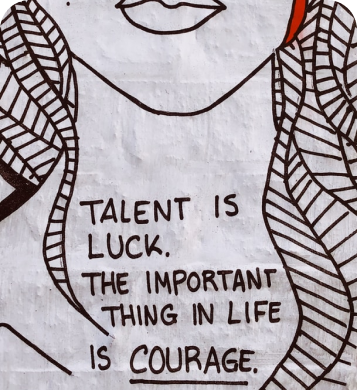 TALENT IS
LUCK.
THE IMPORTANT
THING IN LIFE
IS COURAGE.